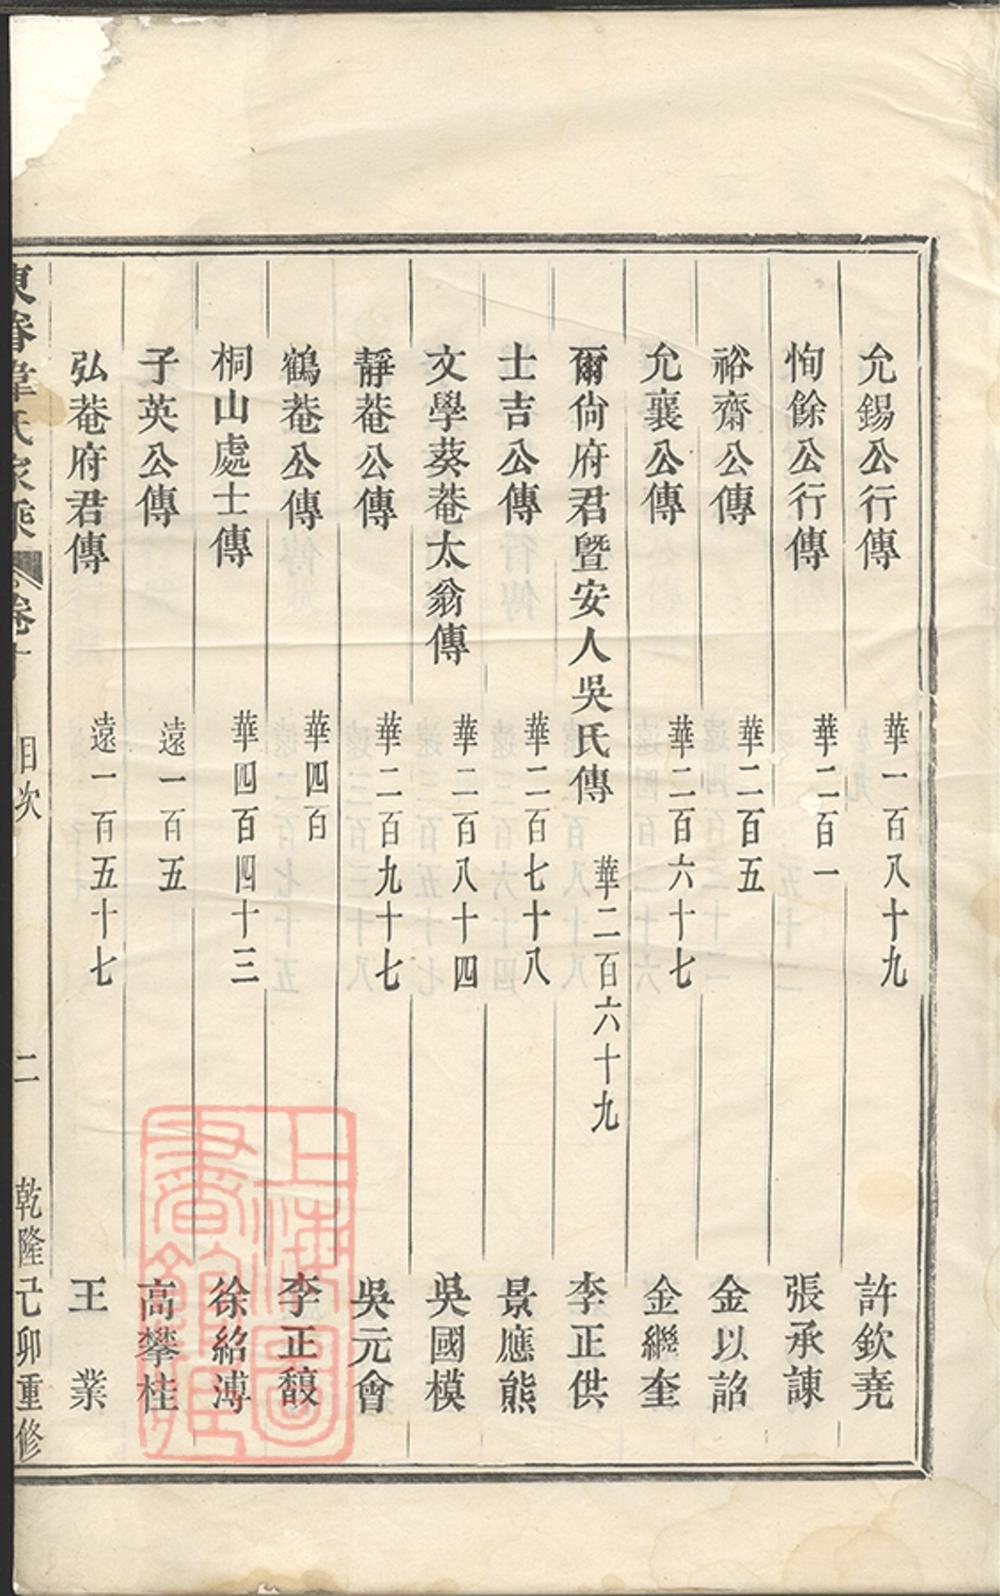 允錫公行傳 華一百八十九 許欽堯
恂餘公行傳 華二百一 張承諫
裕齋公傳 華二百五 金以諂
允襄公傳 華二百六十七 金繼奎
爾尙府君曁安人吳氏傳 華二百六十九 李正供
士吉公傳 華二百七十八 景應熊
文學葵菴太翁傳 華二百八十四 吳國模
靜菴公傳 華二百九十七 吳元會
鶴菴公傳 華四百 李正馥
桐山處士傳 華四百四十三 徐紹溥
子英公傳 遠一百五 高攀桂
弘菴府君傳 遠一百五十七 王業
東眷韋氏家乘 卷十 目次 二 乾隆己卯重修
上海圖書館藏